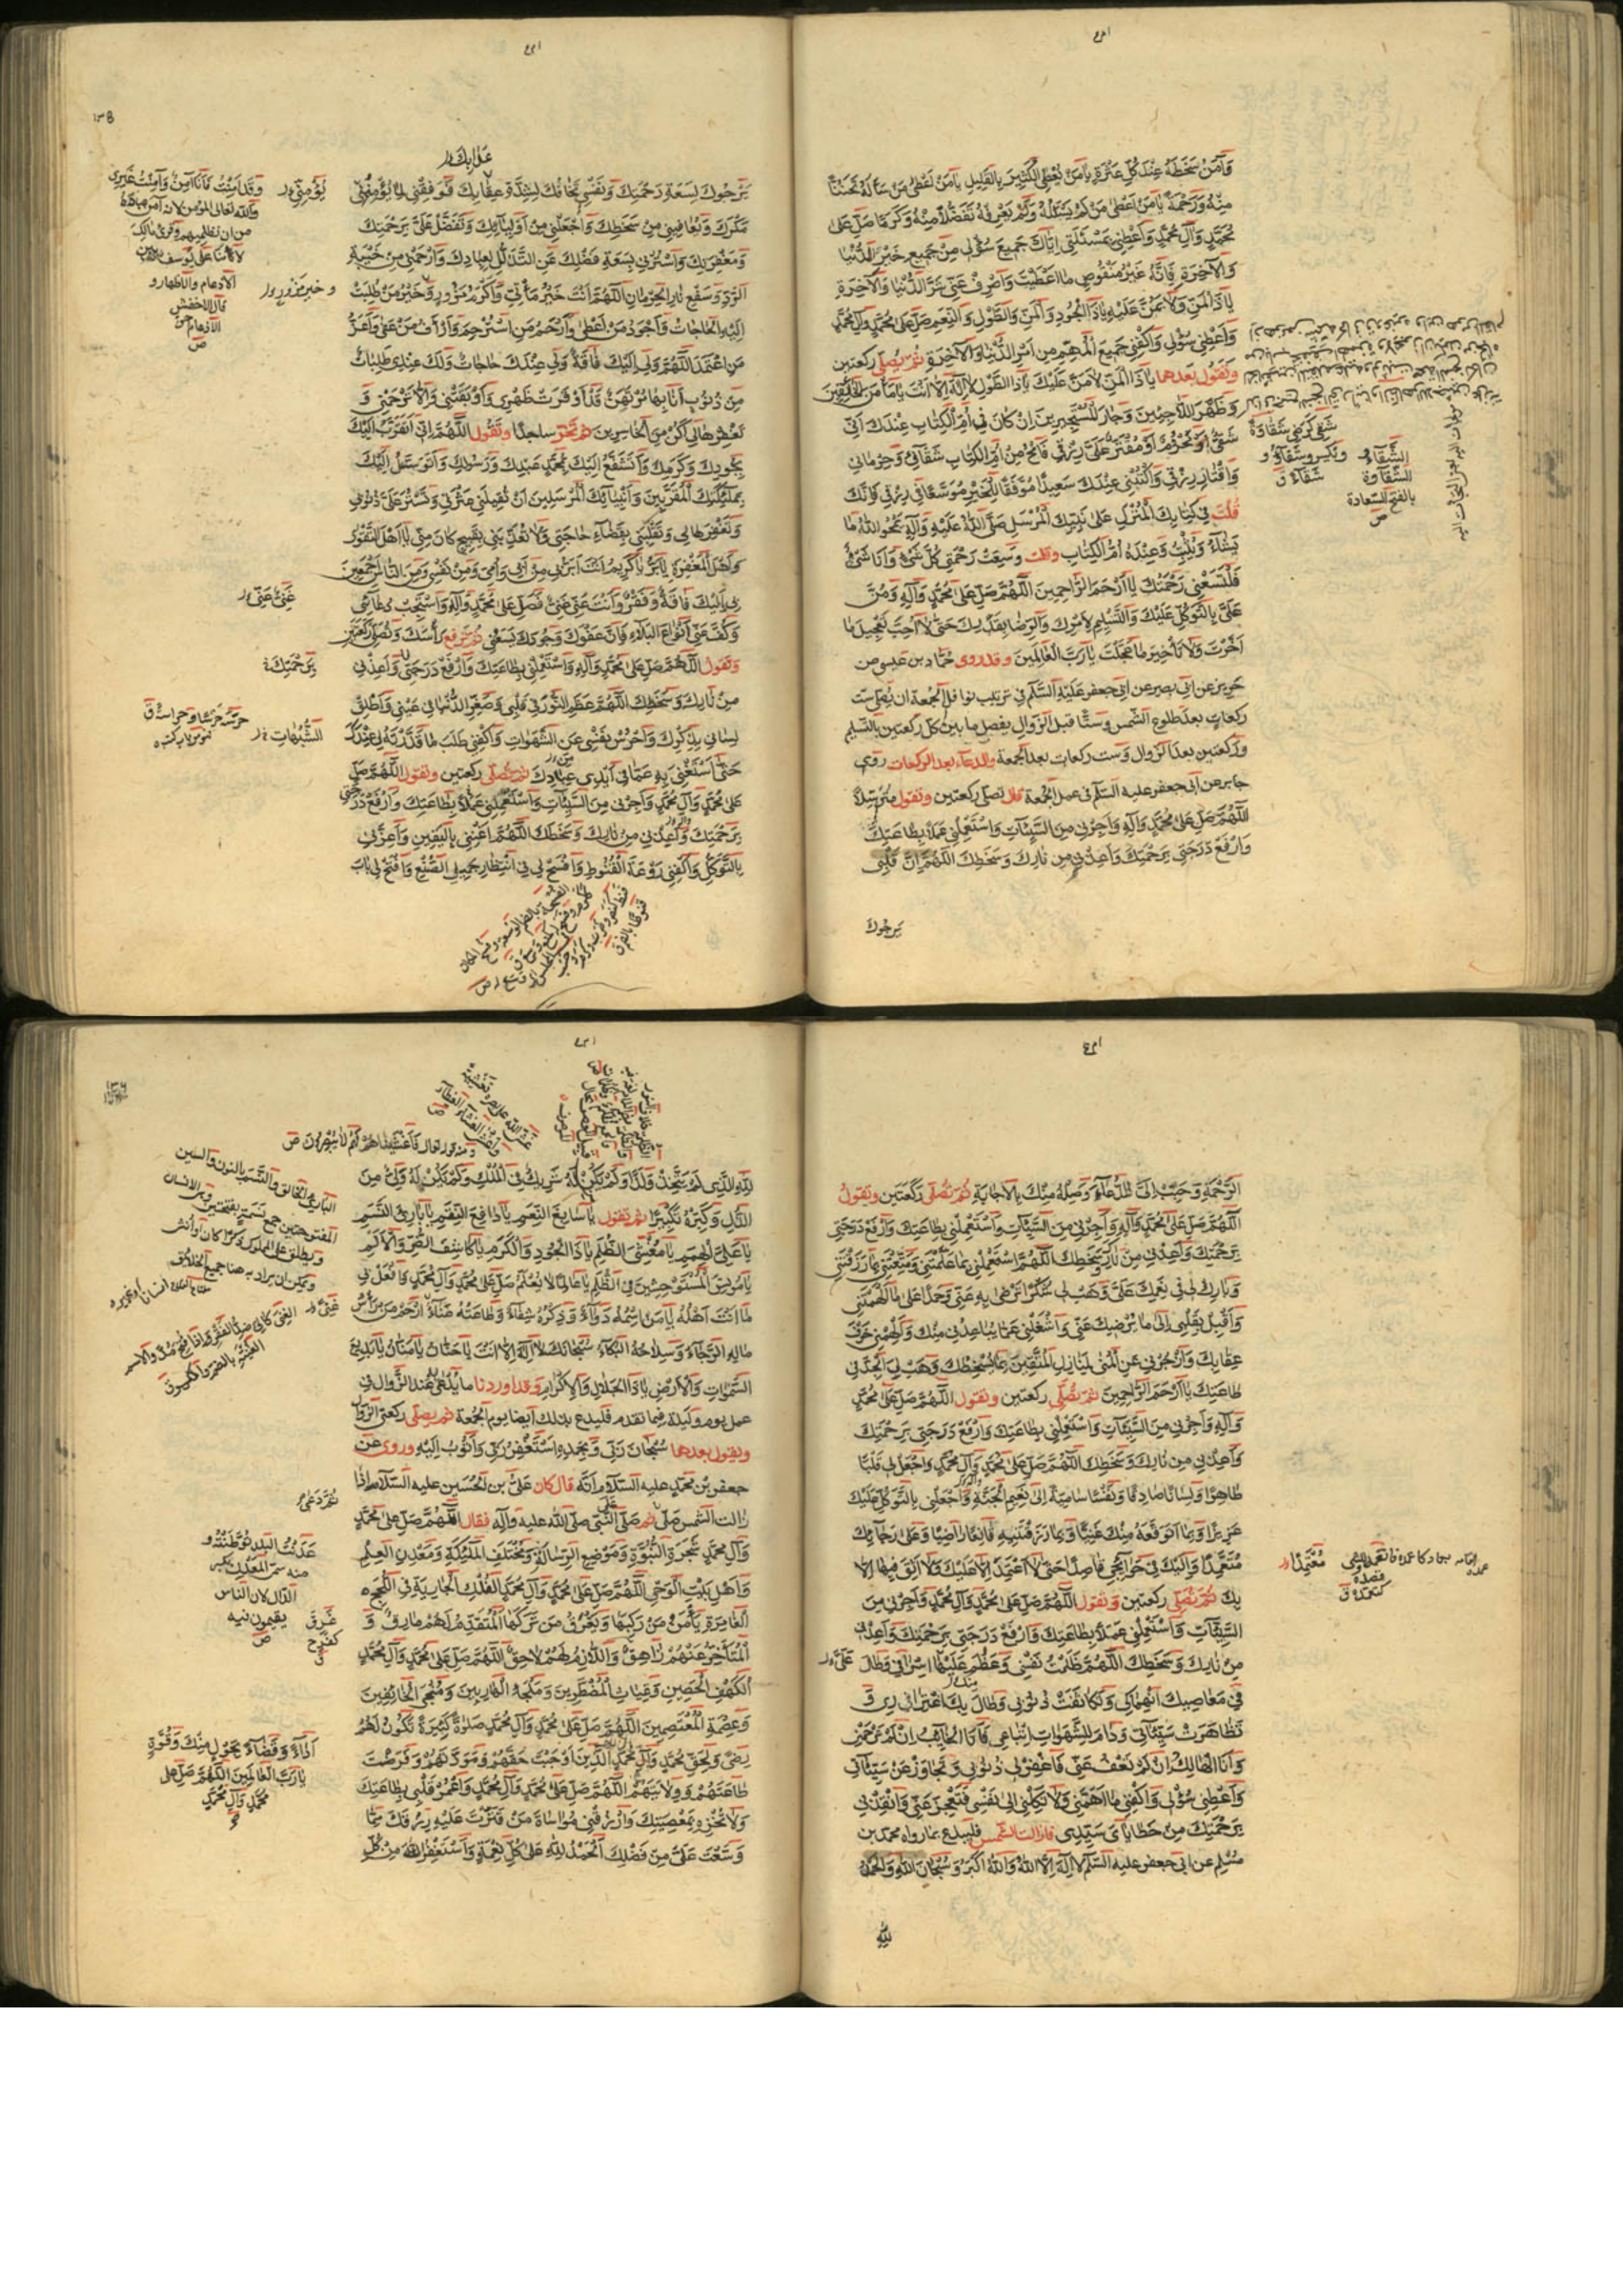 وَآمَنُ سَخَطَهُ عِنْدَ كُلِّ عَثْرَةٍ يَا مَنْ يُعْطِي الْكَثِيرَ بِالْقَلِيلِ يَا مَنْ أَعْطَى مَنْ سَأَلَهُ تَحَنُّنًا
مِنْهُ وَرَحْمَةً يَا مَنْ أَعْطَى مَنْ لَمْ يَسْئَلْهُ وَلَمْ يَعْرِفْهُ تَفَضُّلًا مِنْهُ وَكَرَمًا صَلِّ عَلَى
مُحَمَّدٍ وَآلِ مُحَمَّدٍ وَأَعْطِنِي بِمَسْئَلَتِي إِيَّاكَ جَمِيعَ سُؤْلِي مِنْ جَمِيعِ خَيْرِ الدُّنْيَا
وَالْآخِرَةِ فَإِنَّهُ غَيْرُ مَنْقُوصٍ مَا أَعْطَيْتَ وَاصْرِفْ عَنِّي شَرَّ الدُّنْيَا وَالْآخِرَةِ
يَا ذَا الْمَنِّ وَلَا يُمَنُّ عَلَيْهِ يَا ذَا الْجُودِ وَالْمَنِّ وَالطَّوْلِ وَالنِّعَمِ صَلِّ عَلَى مُحَمَّدٍ وَآلِ مُحَمَّدٍ
وَأَعْطِنِي سُؤْلِي وَاكْفِنِي جَمِيعَ الْمُهِمِّ مِنْ أَمْرِ الدُّنْيَا وَالْآخِرَةِ ثُمَّ يُصَلِّي ركعتين
وَتَقُولُ بَعْدَهُمَا يَا ذَا الْمَنِّ لَا مَنَّ عَلَيْكَ يَا ذَا الطَّوْلِ لَا إِلَهَ إِلَّا أَنْتَ يَا مَأْمَنَ الْخَائِفِينَ
وَظَهْرَ اللَّاجِينَ وَجَارَ الْمُسْتَجِيرِينَ إِنْ كَانَ فِي أُمِّ الْكِتَابِ عِنْدَكَ أَنِّي
شَقِيٌّ أَوْ مَحْرُومٌ أَوْ مُقْتَرٌ عَلَيَّ رِزْقِي فَامْحُ مِنْ أُمِّ الْكِتَابِ شَقَائِي وَحِرْمَانِي
وَإِقْتَارَ رِزْقِي وَاكْتُبْنِي عِنْدَكَ سَعِيدًا مُوَفَّقًا لِلْخَيْرِ مُوَسَّعًا فِي رِزْقِي فَإِنَّكَ
قُلْتَ فِي كِتَابِكَ الْمُنْزَلِ عَلَى نَبِيِّكَ الْمُرْسَلِ صَلَّى اللَّهُ عَلَيْهِ وَآلِهِ يَمْحُو اللَّهُ مَا
يَشَاءُ وَيُثْبِتُ وَعِنْدَهُ أُمُّ الْكِتَابِ وقلت وَسِعَتْ رَحْمَتِي كُلَّ شَيْءٍ وَأَنَا شَيْءٌ
فَلْتَسَعْنِي رَحْمَتُكَ يَا أَرْحَمَ الرَّاحِمِينَ اللَّهُمَّ صَلِّ عَلَى مُحَمَّدٍ وَآلِهِ وَمُنَّ
عَلَيَّ بِالتَّوَكُّلِ عَلَيْكَ وَالتَّسْلِيمِ لِأَمْرِكَ وَالرِّضَا بِقَدَرِكَ حَتَّى لَا أُحِبَّ تَعْجِيلَ مَا
أَخَّرْتَ وَلَا تَأْخِيرَ مَا عَجَّلْتَ يَا رَبَّ الْعَالَمِينَ وقد روى حماد بن عيسى عن
حريز عن ابي بصير عن ابي جعفر عليه السلم في ترتيب نوافل الجمعة ان يصلى ست
ركعات بعد طلوع الشمس وستا قبل الزوال يفصل ما بين كل ركعتين بالتسليم
وركعتين بعد الزوال وست ركعات بعد الجمعة والدعاء بعد الركعات روى
جابر عن ابي جعفر عليه السلم في عمل الجمعة قال تصلى ركعتين وتقول مترسلا
اللَّهُمَّ صَلِّ عَلَى مُحَمَّدٍ وَآلِهِ وَأَجِرْنِي مِنَ السَّيِّئَاتِ وَاسْتَعْمِلْنِي عَمَلًا بِطَاعَتِكَ
وَارْفَعْ دَرَجَتِي بِرَحْمَتِكَ وَأَعِذْنِي مِنْ نَارِكَ وَسَخَطِكَ اللَّهُمَّ إِنَّ قَلْبِي
يَرْجُوكَ
الشَّقَاءُ
الشَّقَاوَةُ
بالفتح السعادة
ص
يَرْجُوكَ لِسَعَةِ رَحْمَتِكَ وَنَفْسِي تَخَافُكَ لِشِدَّةِ عِقَابِكَ فَوَفِّقْنِي لِمَا يُؤْمِنُنِي
مَكْرَكَ وَتُعَافِينِي مِنْ سَخَطِكَ وَاجْعَلْنِي مِنْ أَوْلِيَائِكَ وَتَفَضَّلْ عَلَيَّ بِرَحْمَتِكَ
وَمَغْفِرَتِكَ وَاسْتُرْنِي بِسَعَةِ فَضْلِكَ عَنِ التَّذَلُّلِ لِعِبَادِكَ وَارْحَمْنِي مِنْ خَيْبَةِ
الرَّدِّ وَسَفْعِ نَارِ الْحِرْمَانِ اللَّهُمَّ أَنْتَ خَيْرُ مَأْتِيٍّ وَأَكْرَمُ مَزُورٍ وَخَيْرُ مَنْ طُلِبَتْ
إِلَيْهِ الْحَاجَاتُ وَأَجْوَدُ مَنْ أَعْطَى وَأَرْحَمُ مَنِ اسْتُرْحِمَ وَأَرْأَفُ مَنْ عَفَى وَأَعَزُّ
مَنِ اعْتُمِدَ اللَّهُمَّ وَلِي إِلَيْكَ فَاقَةٌ وَلِي عِنْدَكَ حَاجَاتٌ وَلَكَ عِنْدِي طَلِبَاتٌ
مِنْ ذُنُوبٍ أَنَا بِهَا مُرْتَهَنٌ قَدْ أَوْقَرَتْ ظَهْرِي وَأَوْبَقَتْنِي وَإِلَّا تَرْحَمْنِي وَ
تَغْفِرْهَا لِي أَكُنْ مِنَ الْخَاسِرِينَ ثم تخر ساجدا وتقول اللَّهُمَّ إِنِّي أَتَقَرَّبُ إِلَيْكَ
بِجُودِكَ وَكَرَمِكَ وَأَتَشَفَّعُ إِلَيْكَ بِمُحَمَّدٍ عَبْدِكَ وَرَسُولِكَ وَأَتَوَسَّلُ إِلَيْكَ
بِمَلَائِكَتِكَ الْمُقَرَّبِينَ وَأَنْبِيَائِكَ الْمُرْسَلِينَ أَنْ تُقِيلَنِي عَثْرَتِي وَتَسْتُرَ عَلَيَّ ذُنُوبِي
وَتَغْفِرَهَا لِي وَتَقْلِبَنِي بِقَضَاءِ حَاجَتِي وَلَا تُعَذِّبَنِي بِقَبِيحٍ كَانَ مِنِّي يَا أَهْلَ التَّقْوَى
وَأَهْلَ الْمَغْفِرَةِ يَا بَرُّ يَا كَرِيمُ أَنْتَ أَبَرُّ بِي مِنْ أَبِي وَأُمِّي وَمِنْ نَفْسِي وَمِنَ النَّاسِ أَجْمَعِينَ
بِي إِلَيْكَ فَاقَةٌ وَفَقْرٌ وَأَنْتَ عَنِّي غَنِيٌّ فَصَلِّ عَلَى مُحَمَّدٍ وَآلِهِ وَاسْتَجِبْ دُعَائِي
وَكُفَّ عَنِّي أَنْوَاعَ الْبَلَاءِ فَإِنَّ عَفْوَكَ وَجُودَكَ يَسَعُنِي ثم ترفع رَأْسَكَ وَتُصَلِّي رَكْعَتَيْنِ
وتقول اللَّهُمَّ صَلِّ عَلَى مُحَمَّدٍ وَآلِهِ وَاسْتَعْمِلْنِي بِطَاعَتِكَ وَارْفَعْ دَرَجَتِي وَأَعِذْنِي
مِنْ نَارِكَ وَسَخَطِكَ اللَّهُمَّ عَظِّمِ النُّورَ فِي قَلْبِي وَصَغِّرِ الدُّنْيَا فِي عَيْنِي وَأَطْلِقْ
لِسَانِي بِذِكْرِكَ وَاحْرُسْ نَفْسِي عَنِ الشَّهَوَاتِ وَاكْفِنِي طَلَبَ مَا قَدَّرْتَهُ لِي عِنْدَكَ
حَتَّى أَسْتَغْنِيَ بِهِ عَمَّا فِي أَيْدِي عِبَادِكَ ثم تصلى ركعتين وتقول اللَّهُمَّ صَلِّ
عَلَى مُحَمَّدٍ وَآلِ مُحَمَّدٍ وَأَجِرْنِي مِنَ السَّيِّئَاتِ وَاسْتَعْمِلْنِي عَمَلًا بِطَاعَتِكَ وَارْفَعْ دَرَجَتِي
بِرَحْمَتِكَ وَأَعِذْنِي مِنْ نَارِكَ وَسَخَطِكَ اللَّهُمَّ أَغْنِنِي بِالْيَقِينِ وَأَعِزَّنِي
بِالتَّوَكُّلِ وَاكْفِنِي رَوْعَةَ الْقُنُوطِ وَافْسَحْ لِي فِي انْتِظَارِ جَمِيلِ الصُّنْعِ وَافْتَحْ لِي بَابَ
الرَّحْمَةِ وَحَبِّبْ إِلَيَّ الدُّعَاءَ وَصِلْهُ مِنْكَ بِالْإِجَابَةِ ثم تصلى رَكْعَتَيْنِ وتقول
اللَّهُمَّ صَلِّ عَلَى مُحَمَّدٍ وَآلِهِ وَأَجِرْنِي مِنَ السَّيِّئَاتِ وَاسْتَعْمِلْنِي بِطَاعَتِكَ وَارْفَعْ دَرَجَتِي
بِرَحْمَتِكَ وَأَعِذْنِي مِنْ نَارِكَ وَسَخَطِكَ اللَّهُمَّ اسْتَعْمِلْنِي بِمَا عَلَّمْتَنِي وَمَتِّعْنِي بِمَا رَزَقْتَنِي
وَبَارِكْ لِي فِي نِعَمِكَ عَلَيَّ وَهَبْ لِي شُكْرًا تَرْضَى بِهِ عَنِّي وَحَمْدًا عَلَى مَا أَلْهَمْتَنِي
وَأَقْبِلْ بِقَلْبِي إِلَى مَا يُرْضِيكَ عَنِّي وَاشْغَلْنِي عَمَّا يُبَاعِدُنِي مِنْكَ وَأَلْهِمْنِي خَوْفَ
عِقَابِكَ وَازْجُرْنِي عَنِ الْمُنَى لِمَنَازِلِ الْمُتَّقِينَ بِمَا يُسْخِطُكَ وَهَبْ لِي الْجِدَّ فِي
طَاعَتِكَ يَا أَرْحَمَ الرَّاحِمِينَ ثم تصلى ركعتين وتقول اللَّهُمَّ صَلِّ عَلَى مُحَمَّدٍ
وَآلِهِ وَأَجِرْنِي مِنَ السَّيِّئَاتِ وَاسْتَعْمِلْنِي بِطَاعَتِكَ وَارْفَعْ دَرَجَتِي بِرَحْمَتِكَ
وَأَعِذْنِي مِنْ نَارِكَ وَسَخَطِكَ اللَّهُمَّ صَلِّ عَلَى مُحَمَّدٍ وَآلِ مُحَمَّدٍ وَاجْعَلْ لِي قَلْبًا
طَاهِرًا وَلِسَانًا صَادِقًا وَنَفْسًا سَامِيَةً إِلَى نَعِيمِ الْجَنَّةِ وَاجْعَلْنِي بِالتَّوَكُّلِ عَلَيْكَ
عَزِيزًا وَبِمَا أَتَوَقَّعُهُ مِنْكَ غَنِيًّا وَبِمَا رَزَقْتَنِيهِ قَانِعًا رَاضِيًا وَعَلَى رَجَائِكَ
مُعْتَمِدًا وَإِلَيْكَ فِي حَوَائِجِي قَاصِدًا حَتَّى لَا أَعْتَمِدَ إِلَّا عَلَيْكَ وَلَا أَثِقَ فِيهَا إِلَّا
بِكَ ثم تصلى ركعتين وتقول اللَّهُمَّ صَلِّ عَلَى مُحَمَّدٍ وَآلِ مُحَمَّدٍ وَأَجِرْنِي مِنَ
السَّيِّئَاتِ وَاسْتَعْمِلْنِي عَمَلًا بِطَاعَتِكَ وَارْفَعْ دَرَجَتِي بِرَحْمَتِكَ وَأَعِذْنِي
مِنْ نَارِكَ وَسَخَطِكَ اللَّهُمَّ ظَلَمْتُ نَفْسِي وَعَظُمَ عَلَيْهَا إِسْرَافِي وَطَالَ
فِي مَعَاصِيكَ انْهِمَاكِي وَتَكَاثَفَتْ ذُنُوبِي وَطَالَ بِكَ اغْتِرَارِي وَ
تَظَاهَرَتْ سَيِّئَاتِي وَدَامَ لِلشَّهَوَاتِ اتِّبَاعِي فَأَنَا الْخَائِبُ إِنْ لَمْ تَرْحَمْنِي
وَأَنَا الْهَالِكُ إِنْ لَمْ تَعْفُ عَنِّي فَاغْفِرْ لِي ذُنُوبِي وَتَجَاوَزْ عَنْ سَيِّئَاتِي
وَأَعْطِنِي سُؤْلِي وَاكْفِنِي مَا أَهَمَّنِي وَلَا تَكِلْنِي إِلَى نَفْسِي فَتَعْجِزَ عَنِّي وَأَنْقِذْنِي
بِرَحْمَتِكَ مِنْ خَطَايَايَ سَيِّدِي فاذا زالت الشمس فليدع بما رواه محمد بن
مسلم عن ابي جعفر عليه السلم لَا إِلَهَ إِلَّا اللَّهُ وَاللَّهُ أَكْبَرُ وَسُبْحَانَ اللَّهِ وَالْحَمْدُ
لِلَّهِ
لِلَّهِ الَّذِي لَمْ يَتَّخِذْ وَلَدًا وَلَمْ يَكُنْ لَهُ شَرِيكٌ فِي الْمُلْكِ وَلَمْ يَكُنْ لَهُ وَلِيٌّ مِنَ
الذُّلِّ وَكَبِّرْهُ تَكْبِيرًا ثم تقول يَا سَابِغَ النِّعَمِ يَا دَافِعَ النِّقَمِ يَا بَارِئَ النَّسَمِ
يَا عَلِيَّ الْهِمَمِ يَا مُغْشِيَ الظُّلَمِ يَا ذَا الْجُودِ وَالْكَرَمِ يَا كَاشِفَ الضُّرِّ وَالْأَلَمِ
يَا مُونِسَ الْمُسْتَوْحِشِينَ فِي الظُّلَمِ يَا عَالِمًا لَا يُعَلَّمُ صَلِّ عَلَى مُحَمَّدٍ وَآلِ مُحَمَّدٍ وَافْعَلْ بِي
مَا أَنْتَ أَهْلُهُ يَا مَنِ اسْمُهُ دَوَاءٌ وَذِكْرُهُ شِفَاءٌ وَطَاعَتُهُ غَنَاءٌ ارْحَمْ مَنْ رَأْسُ
مَالِهِ الرَّجَاءُ وَسِلَاحُهُ الْبُكَاءُ سُبْحَانَكَ لَا إِلَهَ إِلَّا أَنْتَ يَا حَنَّانُ يَا مَنَّانُ يَا بَدِيعَ
السَّمَوَاتِ وَالْأَرْضِ يَا ذَا الْجَلَالِ وَالْإِكْرَامِ وقد اوردنا ما يُدْعَى عند الزَّوَالِ فِي
عمل يوم وليلة فيما تقدم فليدع بذلك ايضا يوم الجمعة ثم يصلى ركعتي الزوال
ويقول بعدهما سُبْحَانَ رَبِّي وَبِحَمْدِهِ أَسْتَغْفِرُ رَبِّي وَأَتُوبُ إِلَيْهِ وروى عن
جعفر بن محمد عليه السلام انه قال كان علي بن الحسين عليه السلام اذا
زالت الشمس صلى ثم صلى على النبي صلى الله عليه وآله فقال اللَّهُمَّ صَلِّ عَلَى مُحَمَّدٍ
وَآلِ مُحَمَّدٍ شَجَرَةِ النُّبُوَّةِ وَمَوْضِعِ الرِّسَالَةِ وَمُخْتَلَفِ الْمَلَائِكَةِ وَمَعْدِنِ الْعِلْمِ
وَأَهْلِ بَيْتِ الْوَحْيِ اللَّهُمَّ صَلِّ عَلَى مُحَمَّدٍ وَآلِ مُحَمَّدٍ الْفُلْكِ الْجَارِيَةِ فِي اللُّجَجِ
الْغَامِرَةِ يَأْمَنُ مَنْ رَكِبَهَا وَيَغْرَقُ مَنْ تَرَكَهَا الْمُتَقَدِّمُ لَهُمْ مَارِقٌ وَ
الْمُتَأَخِّرُ عَنْهُمْ زَاهِقٌ وَاللَّازِمُ لَهُمْ لَاحِقٌ اللَّهُمَّ صَلِّ عَلَى مُحَمَّدٍ وَآلِ مُحَمَّدٍ
الْكَهْفِ الْحَصِينِ وَغِيَاثِ الْمُضْطَرِّينَ وَمَلْجَإِ الْهَارِبِينَ وَمَنْجَى الْخَائِفِينَ
وَعِصْمَةِ الْمُعْتَصِمِينَ اللَّهُمَّ صَلِّ عَلَى مُحَمَّدٍ وَآلِ مُحَمَّدٍ صَلَوةً كَثِيرَةً تَكُونُ لَهُمْ
رِضًى وَلِحَقِّ مُحَمَّدٍ وَآلِ مُحَمَّدٍ الَّذِينَ أَوْجَبْتَ حَقَّهُمْ وَمَوَدَّتَهُمْ وَفَرَضْتَ
طَاعَتَهُمْ وَوِلَايَتَهُمْ اللَّهُمَّ صَلِّ عَلَى مُحَمَّدٍ وَآلِ مُحَمَّدٍ وَاعْمُرْ قَلْبِي بِطَاعَتِكَ
وَلَا تُخْزِهِ بِمَعْصِيَتِكَ وَارْزُقْنِي مُوَاسَاةَ مَنْ قَتَّرْتَ عَلَيْهِ رِزْقَكَ مِمَّا
وَسَّعْتَ عَلَيَّ مِنْ فَضْلِكَ الْحَمْدُ لِلَّهِ عَلَى كُلِّ نِعْمَةٍ وَأَسْتَغْفِرُ اللَّهَ مِنْ كُلِّ
أَدَاءً وَقَضَاءً بِحَوْلٍ مِنْكَ وَقُوَّةٍ
يَا رَبَّ الْعَالَمِينَ اللَّهُمَّ صَلِّ عَلَى
مُحَمَّدٍ وَآلِ مُحَمَّدٍ